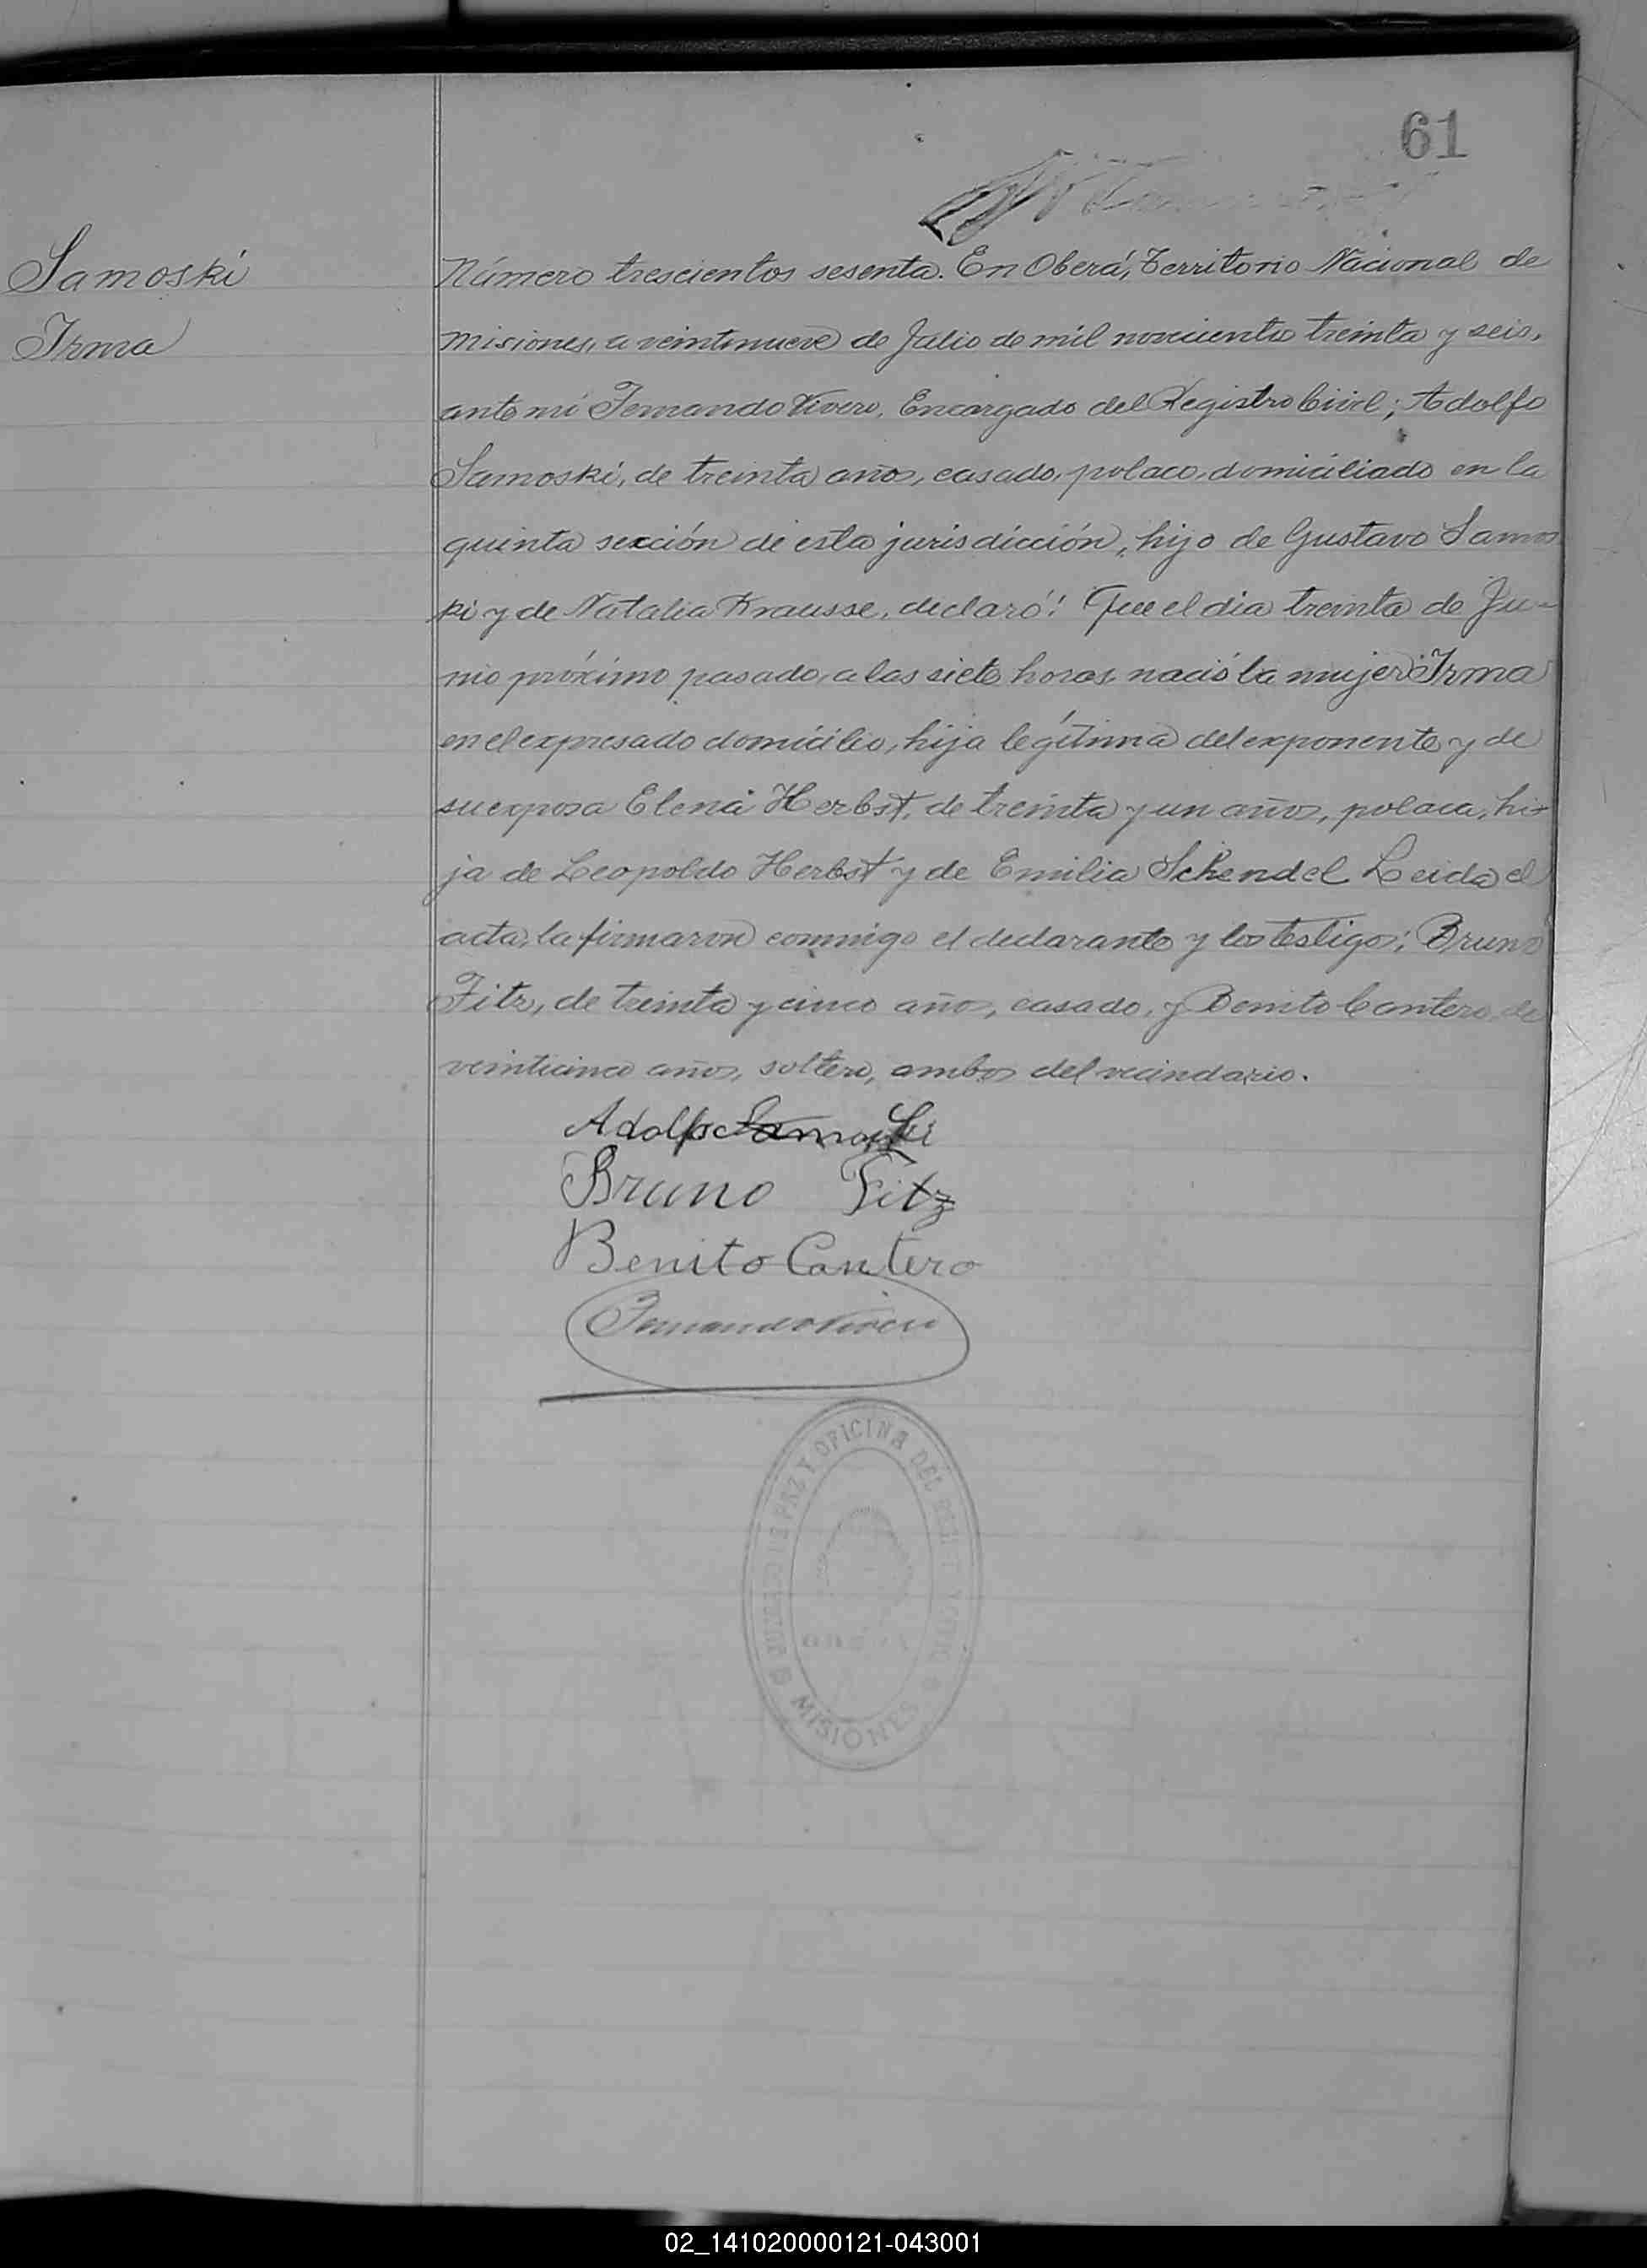 61
Samoski
Irma
Número trescientos sesenta. En Oberá, Territorio Nacional de
Misiones, a veintinueve de Julio de mil novecientos treinta y seis,
ante mí Fernando Vivero, Encargado del Registro Civil; Adolfo
Samoski, de treinta años, casado, polaco, domiciliado en la
quinta sección de esta jurisdicción, hijo de Gustavo Samos
ki y de Natalia Krausse, declaró: Que el dia treinta de Ju-
nio próximo pasado, a las siete horas, nació la mujer Irma
en el expresado domicilio, hija legítima del exponente y de
su esposa Elena Herbst, de treinta y un años, polaca, hi-
ja de Leopoldo Herbst y de Emilia Schendel Leida el
acta, la firmaron conmigo el declarante y los testigos: Bruno
Fitz, de treinta y cinco años, casado, y Benito Cantero, de
veinticinco años, soltero, ambos del vecindario.
Adolfo Samoski
Bruno Fitz
Benito Cantero
Fernando Vivero
JUZGADO DE PAZ Y OFICINA DEL
MISIONES
02_141020000121-043001